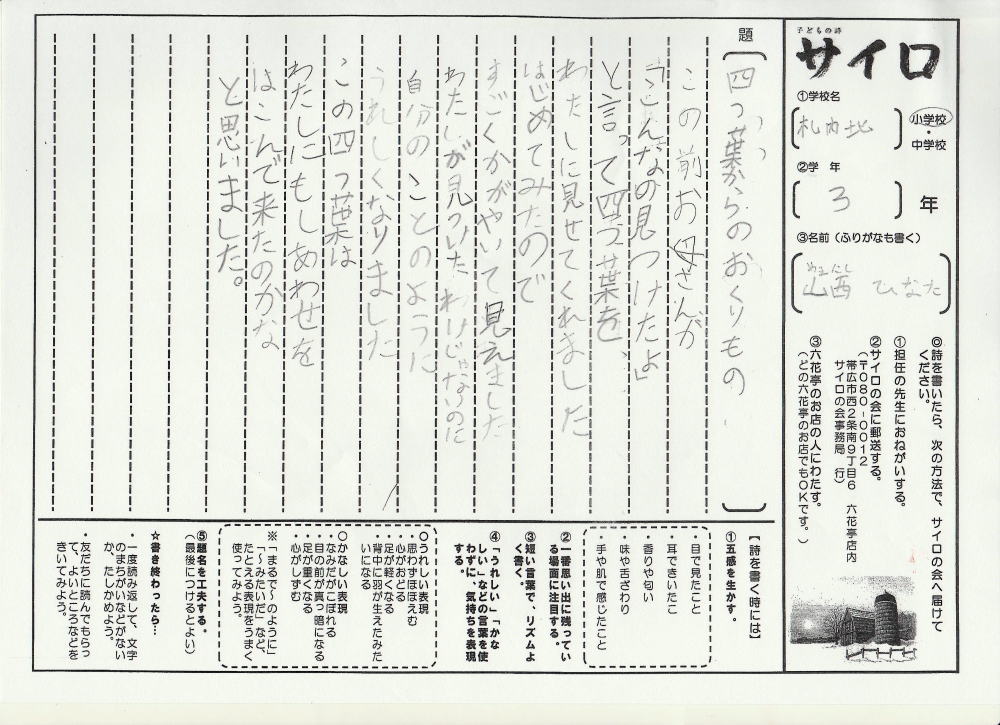 子どもの詩
サイロ
①学校名
札内北
小学校
・
中学校
②学 年
3
年
③名前（ふりがなも書く）
やまにし
山西 ひなた
◎詩を書いたら、次の方法で、サイロの会へ届けて
ください。
①担任の先生におねがいする。
②サイロの会に郵送する。
（〒080-0012
帯広市西2条南9丁目6 六花亭店内
サイロの会事務局 行）
③六花亭のお店の人にわたす。
（どの六花亭のお店でもOKです。）
題
四つ葉からのおくりもの
この前お母さんが
「こんなの見つけたよ」
と言って四つ葉を
わたしに見せてくれました
はじめてみたので
すごくかがやいて見えました
わたしが見つけたわけじゃないのに
自分のことのように
うれしくなりました
この四つ葉は
わたしにもしあわせを
はこんで来たのかな
と思いました。
【詩を書く時には】
①五感を生かす。
・目で見たこと
・耳できいたこと
・香りや匂い
・味や舌ざわり
・手や肌で感じたこと
②一番思い出に残ってい
る場面に注目する。
③短い言葉で、リズムよ
く書く。
④「うれしい」「かな
しい」などの言葉を使
わずに、気持ちを表現
する。
○うれしい表現
・思わずほほえむ
・心がおどる
・足が軽くなる
・背中に羽が生えたみた
いになる
○かなしい表現
・なみだがこぼれる
・目の前が真っ暗になる
・足が重くなる
・心がしずむ
※「まるで〜のように」
「〜みたいだ」など、
たとえる表現をうまく
使ってみよう。
⑤題名を工夫する。
（最後につけるとよい）
☆書き終わったら…
・一度読み返して、文字
のまちがいなどがない
か、たしかめよう。
・友だちに読んでもらっ
て、よいところなどを
きいてみよう。